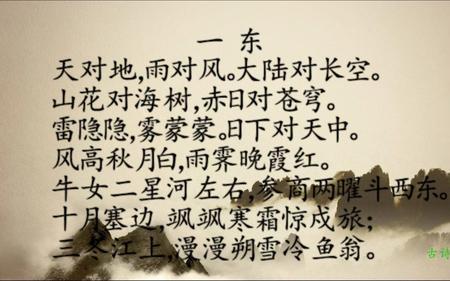 一 东
天对地,雨对风。大陆对长空。
山花对海树,赤日对苍穹。
雷隐隐,雾蒙蒙。日下对天中。
风高秋月白,雨霁晚霞红。
牛女二星河左右,参商两曜斗西东。
十月塞边,飒飒寒霜惊戍旅;
三冬江上,漫漫朔雪冷鱼翁。
古诗